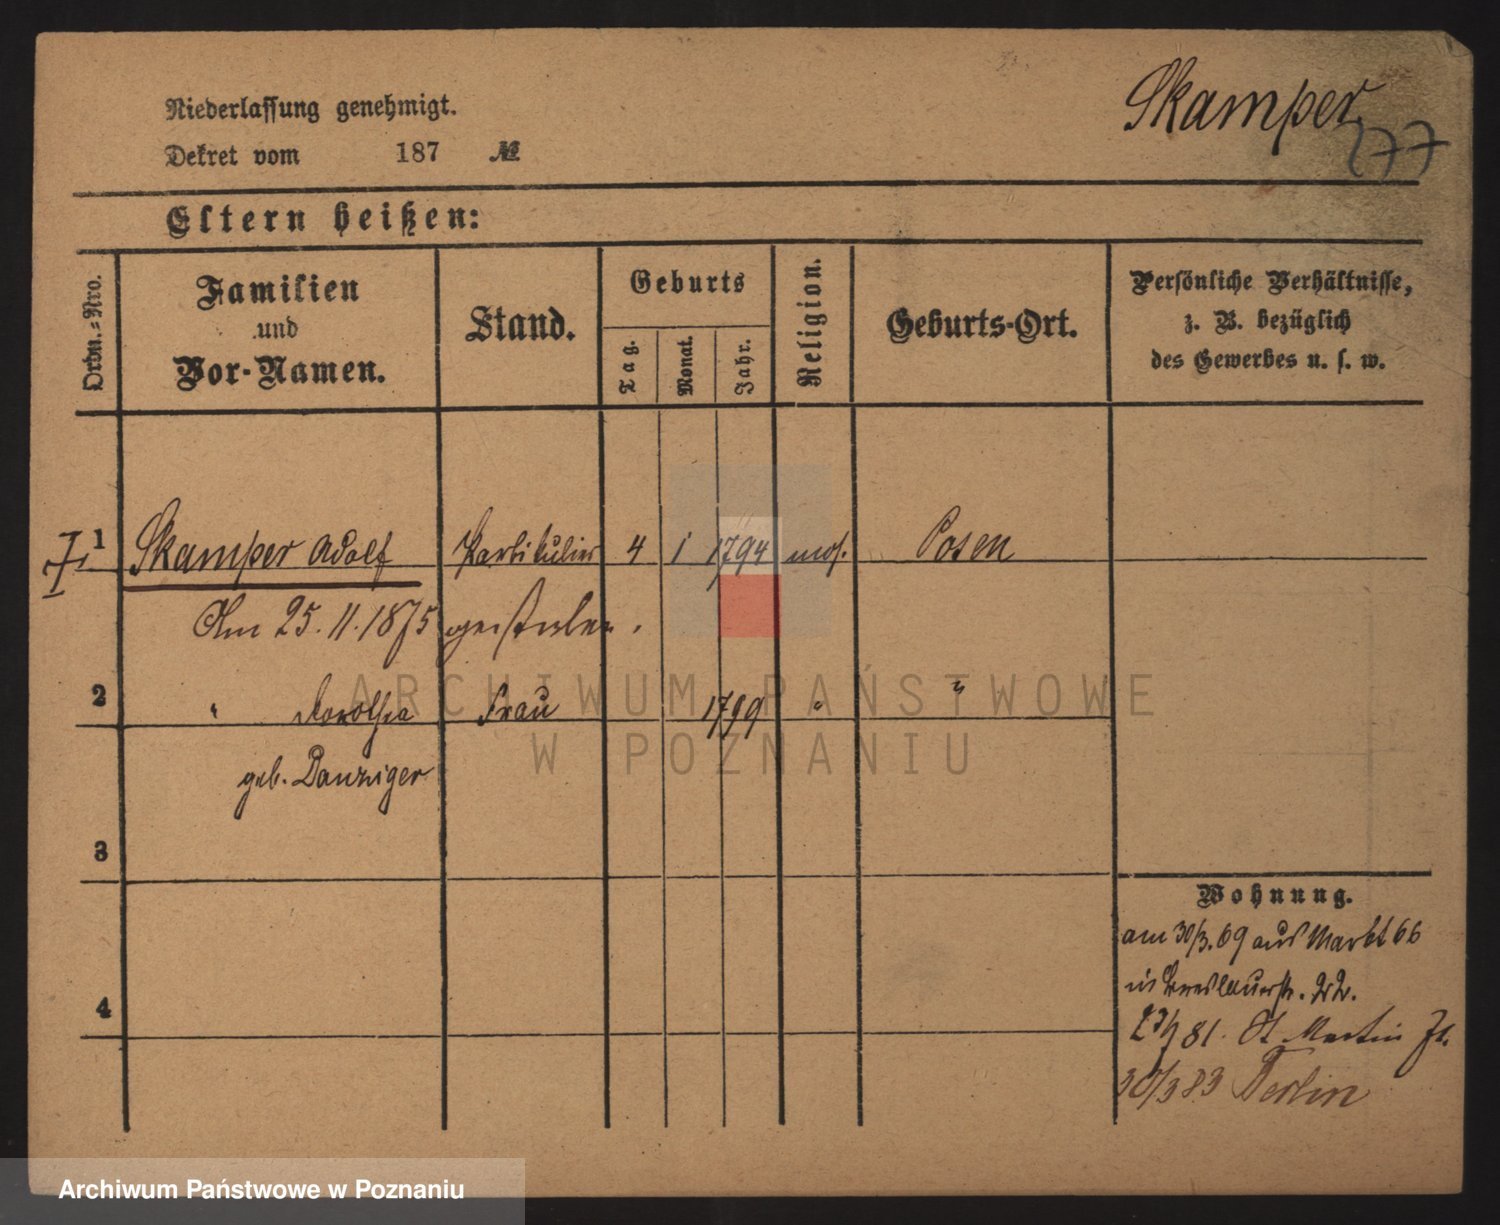 Skamper
277
Niederlassung genehmigt.
Dekret vom 187 №
Eltern heißen:
Ordn.=Nro.
Familien
und
Vor-Namen.
Stand.
Geburts
Tag.
Monat.
Jahr.
Religion.
Geburts-Ort.
Persönliche Verhältnisse,
z. B. bezüglich
des Gewerbes u. s. w.
1 Skamper Adolf Partikulier 4 1 1794 mos. Posen
Am 25.11.1875 gestorben.
2 " Dorothea Frau 1799 " "
geb. Danziger
3
4
Wohnung.
am 30/3.69 aus Markt 66
in Breslauerstr. 22.
81. St. Martin
30/3 83 Berlin
ARCHIWUM PAŃSTWOWE
W POZNANIU
Archiwum Państwowe w Poznaniu